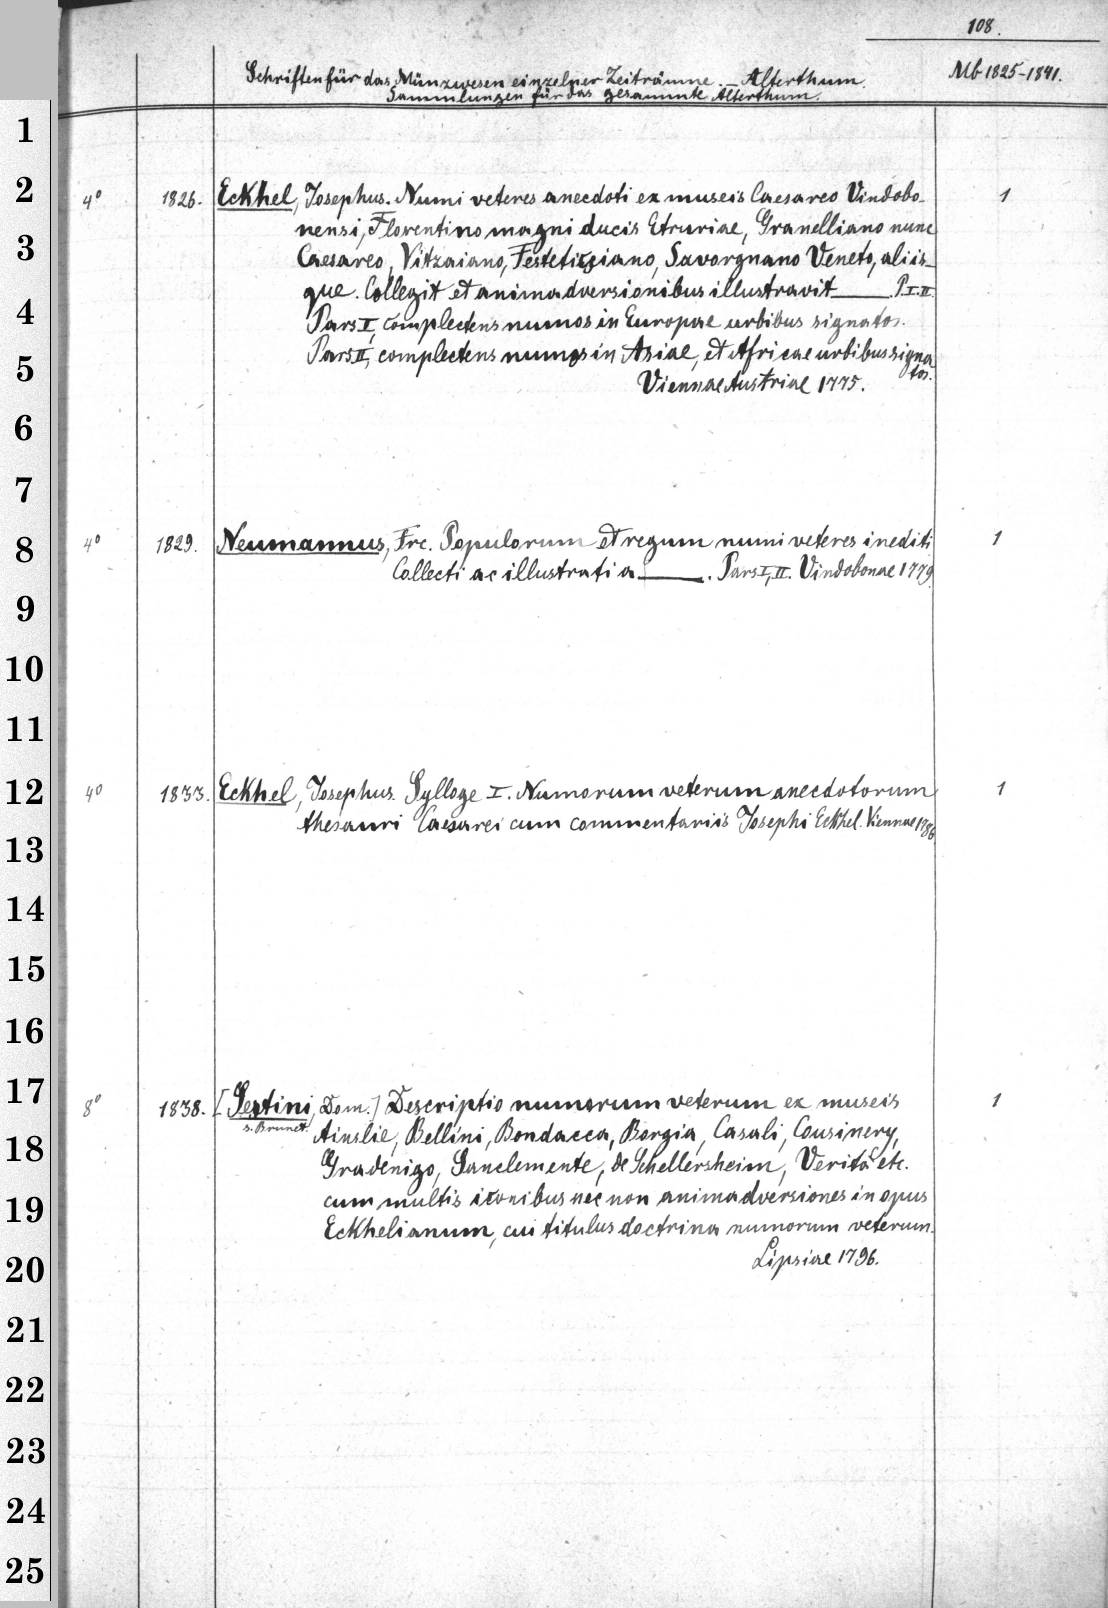 108.
Schriften für das Münzwesen einzelner Zeiträume. — Alterthum.
Mb 1825-1841.
Sammlungen für das gesammte Alterthum.
1
2
3
4
5
6
7
8
9
10
11
12
13
14
15
16
17
18
19
20
21
22
23
24
25
4° 1826. Eckhel, Josephus. Numi veteres anecdoti ex museis Caesareo Vindobo- 1
nensi, Florentino magni ducis Etruriae, Granelliano nunc
Caesareo, Vitzaiano, Festeticsiano, Savorgnano Veneto, aliis-
que. Collegit et animadversionibus illustravit ——. P I. II.
Pars I, complectens numos in Europae urbibus signatos.
Pars II, complectens numos in Asiae, et Africae urbibus signa
tos.
Viennae Austriae 1775.
4° 1829. Neumannus, Frc. Populorum et regum numi veteres inediti 1
Collecti ac illustrati a ——. Pars I, II. Vindobonae 1779.
4° 1833. Eckhel, Josephus. Sylloge I. Numorum veterum anecdotorum 1
thesauri Caesarei cum commentariis Josephi Eckhel. Viennae 1786
8° 1838. [Sestini, Dom.] Descriptio numorum veterum ex museis 1
s. Brunet. Ainslie, Bellini, Bondacca, Borgia, Casali, Cousinery,
Gradenigo, Sanclemente, de Schellersheim, Verità etc.
cum multis iconibus nec non animadversiones in opus
Eckhelianum, cui titulus doctrina numorum veterum.
Lipsiae 1796.